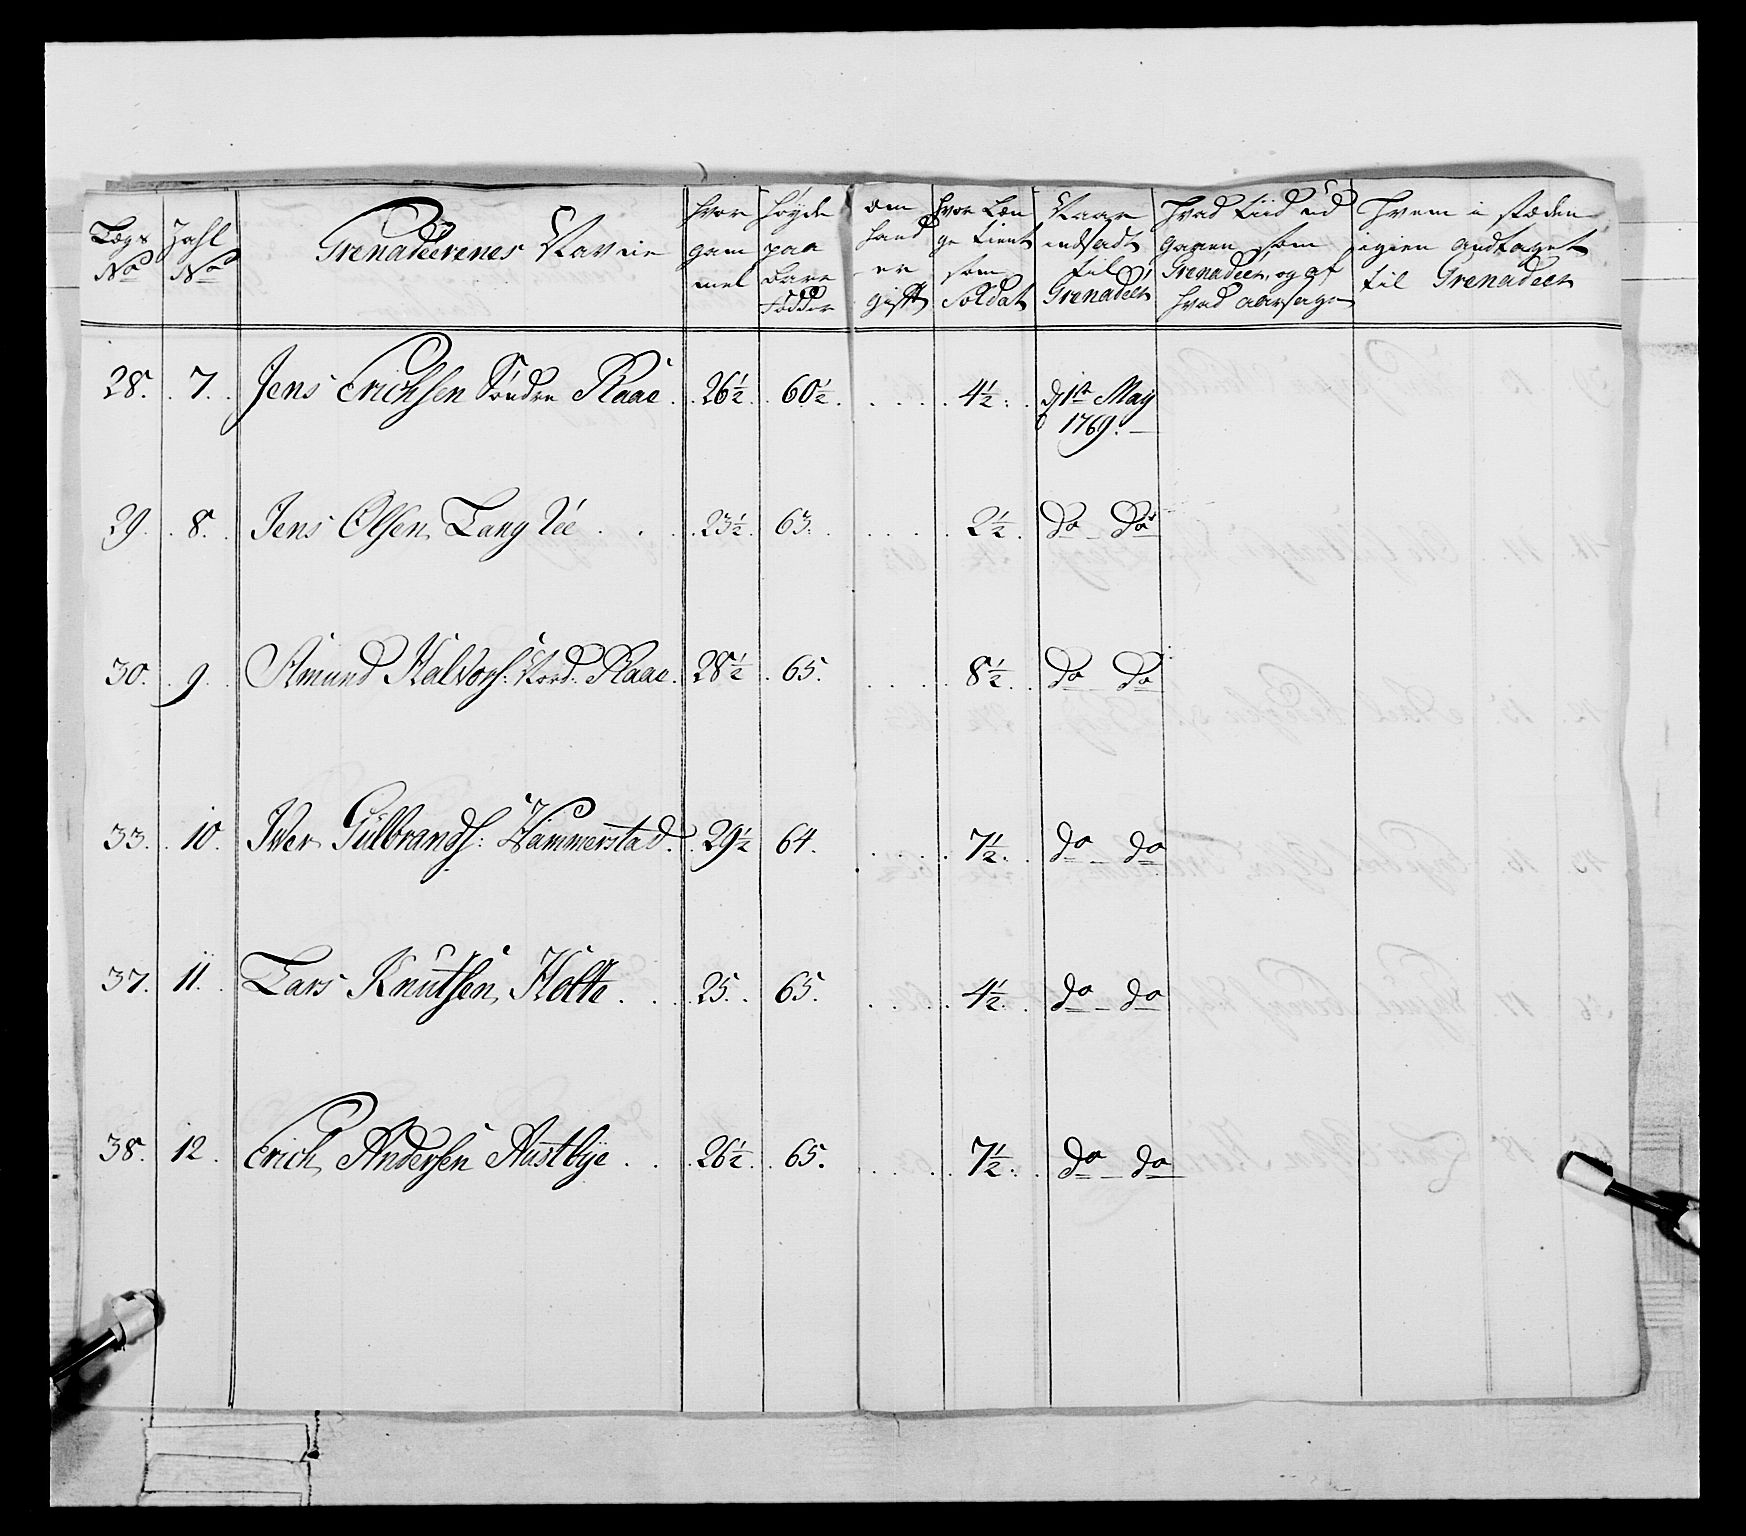 Lægs No
Zahl No
Grenadeerenes Navne
hvor gam mel
Høyde paa bare Fødder
om hand er gift
hvor Læn ge tient som Soldat
Naar indsadt til Grenadeer
Hvad tiid ud gaaen som Grenadeer, og af hvad aarsage
Hvem i stæden igien andtaget til Grenadeer
28. 7. Jens Erichsen Søndre Raae 26½ 60½ 4½ d 1ste May 1769.
29. 8. Jens Olsen Lang 23½ 63. 2½ do do
30. 9. Amund Halvors: Nord: Raae 28½ 65. 8½ do do
33. 10. Iver Gulbrands: Hammerstad 29½ 64. 7½ do do
37. 11. Lars Knutsen Holte 25. 65. 4½ do do
38. 12. Erich Andersen Austbye 26½ 65. 7½ do do